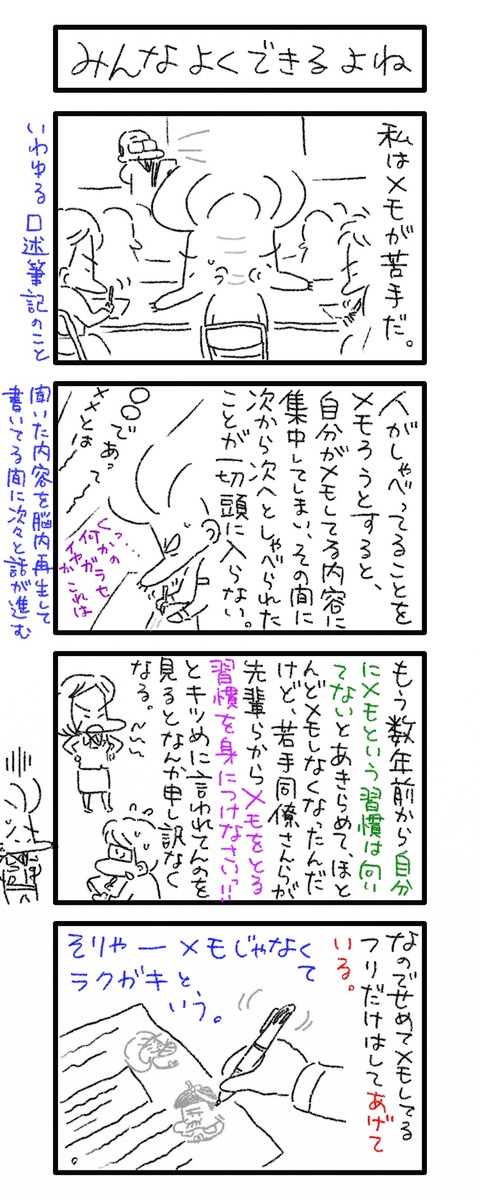 みんなよくできるよね
私はメモが苦手だ。
いわゆる口述筆記のこと
人がしゃべってることを
メモろうとすると、
自分がメモしてる内容に
集中してしまい、その間に
次から次へとしゃべられた
ことが一切頭に入らない。
〇〇であって
××とは
くっ…
何かの
イヤがらせ
か、これは
聞いた内容を脳内再生して
書いてる間に次々と話が進む
もう数年前から自分
にメモという習慣は向い
てないとあきらめて、ほと
んどメモしなくなったんだ
けど、若手同僚さんらが
先輩らからメモをとる
習慣を身につけなさいっ!!
とキツめに言われてんのを
見るとなんか申し訳なく
なる。
なのでせめてメモしてる
フリだけはしてあげて
いる。
そりゃーメモじゃなくて
ラクガキと、
いう。